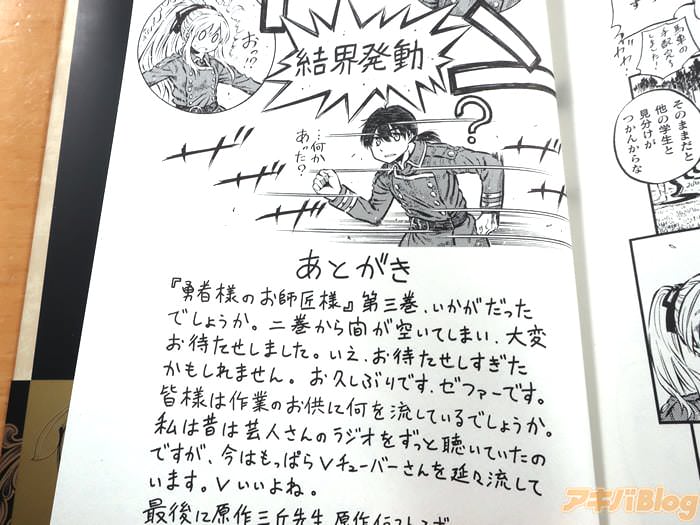 おっ!?
結界発動
?
…何か
あた?
あとがき
『勇者様のお師匠様』第三巻、いかがだった
でしょうか。二巻から間が空いてしまい、大変
お待たせしました。いえ、お待たせしすぎた
かもしれません。お久しぶりです、ゼファーです。
皆様は作業のお供に何を流しているでしょうか。
私は昔は芸人さんのラジオをずっと聴いていたの
ですが、今はもっぱらVチューバーさんを延々流して
います。Vいいよね。
最後に原作三丘先生、原作イラスト
そのままだと
他の学生と
見分けが
つかんからな
アキバBlog